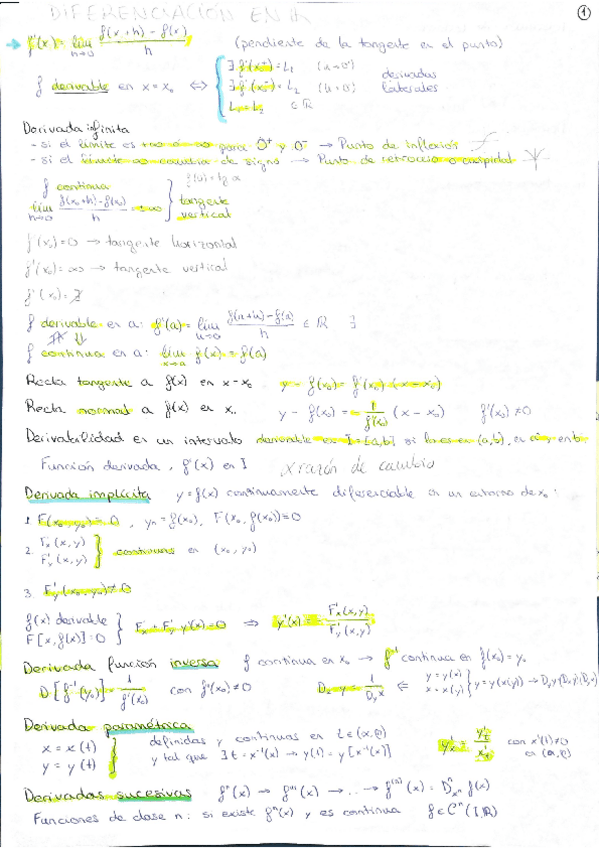 DIFERENCIACIÓN EN ℝ
①
f'(x) = lím h→0 f(x+h) - f(x) / h (pendiente de la tangente en el punto)
f derivable en x=x₀ ⟺ { ∃ f'(x₀⁺) = L₁ (h→0⁺)
∃ f'(x₀⁻) = L₂ (h→0⁻) derivadas laterales
L₁ = L₂ ∈ ℝ
Derivada infinita
- si el límite es +∞ ó -∞ para 0⁺ y 0⁻ → Punto de inflexión
- si el límite ∞ cambia de signo → Punto de retroceso o cuspidal
f continua
lím h→0 f(x₀+h) - f(x₀) / h = ±∞ } tangente vertical
f'(x₀) = 0 → tangente horizontal
f'(x₀) = ∞ → tangente vertical
f'(x₀) = ∄
f derivable en a: f'(a) = lím h→0 f(a+h) - f(a) / h ∈ ℝ ∃
f continua en a: lím x→a f(x) = f(a)
Recta tangente a f(x) en x=x₀ y - f(x₀) = f'(x₀) (x-x₀)
Recta normal a f(x) en x₀ y - f(x₀) = - 1/f'(x₀) (x-x₀) f'(x₀) ≠ 0
Derivabilidad en un intervalo derivable en I=[a,b] si lo es en (a,b), en a⁺ y en b⁻
Función derivada, f'(x) en I x razón de cambio
Derivada implícita y=f(x) continuamente diferenciable en un entorno de x₀:
1. F(x₀,y₀) = 0, y₀ = f(x₀), F(x₀, f(x₀)) = 0
2. F'x (x,y)
F'y (x,y) } continuas en (x₀,y₀)
3. F'y (x₀,y₀) ≠ 0
f(x) derivable
F[x,f(x)] = 0 } F'x + F'y · y'(x) = 0 ⇒ y'(x) = - F'x (x,y) / F'y (x,y)
Derivada función inversa f continua en x₀ → f⁻¹ continua en f(x₀) = y₀
D[f⁻¹(y₀)] = 1 / f'(x₀) con f'(x₀) ≠ 0 Dx y = 1 / Dy x ⇐ y = y(x)
x = x(y) } y = y(x(y)) →
Derivada paramétrica
x = x(t)
y = y(t) } definidas y continuas en
y tal que ∃ t = x⁻¹(x) → y(t) = y[x⁻¹(x)] y'x = y't / x't con x'(t) ≠ 0
Derivadas sucesivas f''(x) → f'''(x) → ... → f⁽ⁿ⁾(x) = Dⁿxⁿ f(x)
Funciones de clase n: si existe fⁿ(x) y es continua f ∈ Cⁿ (I,ℝ)